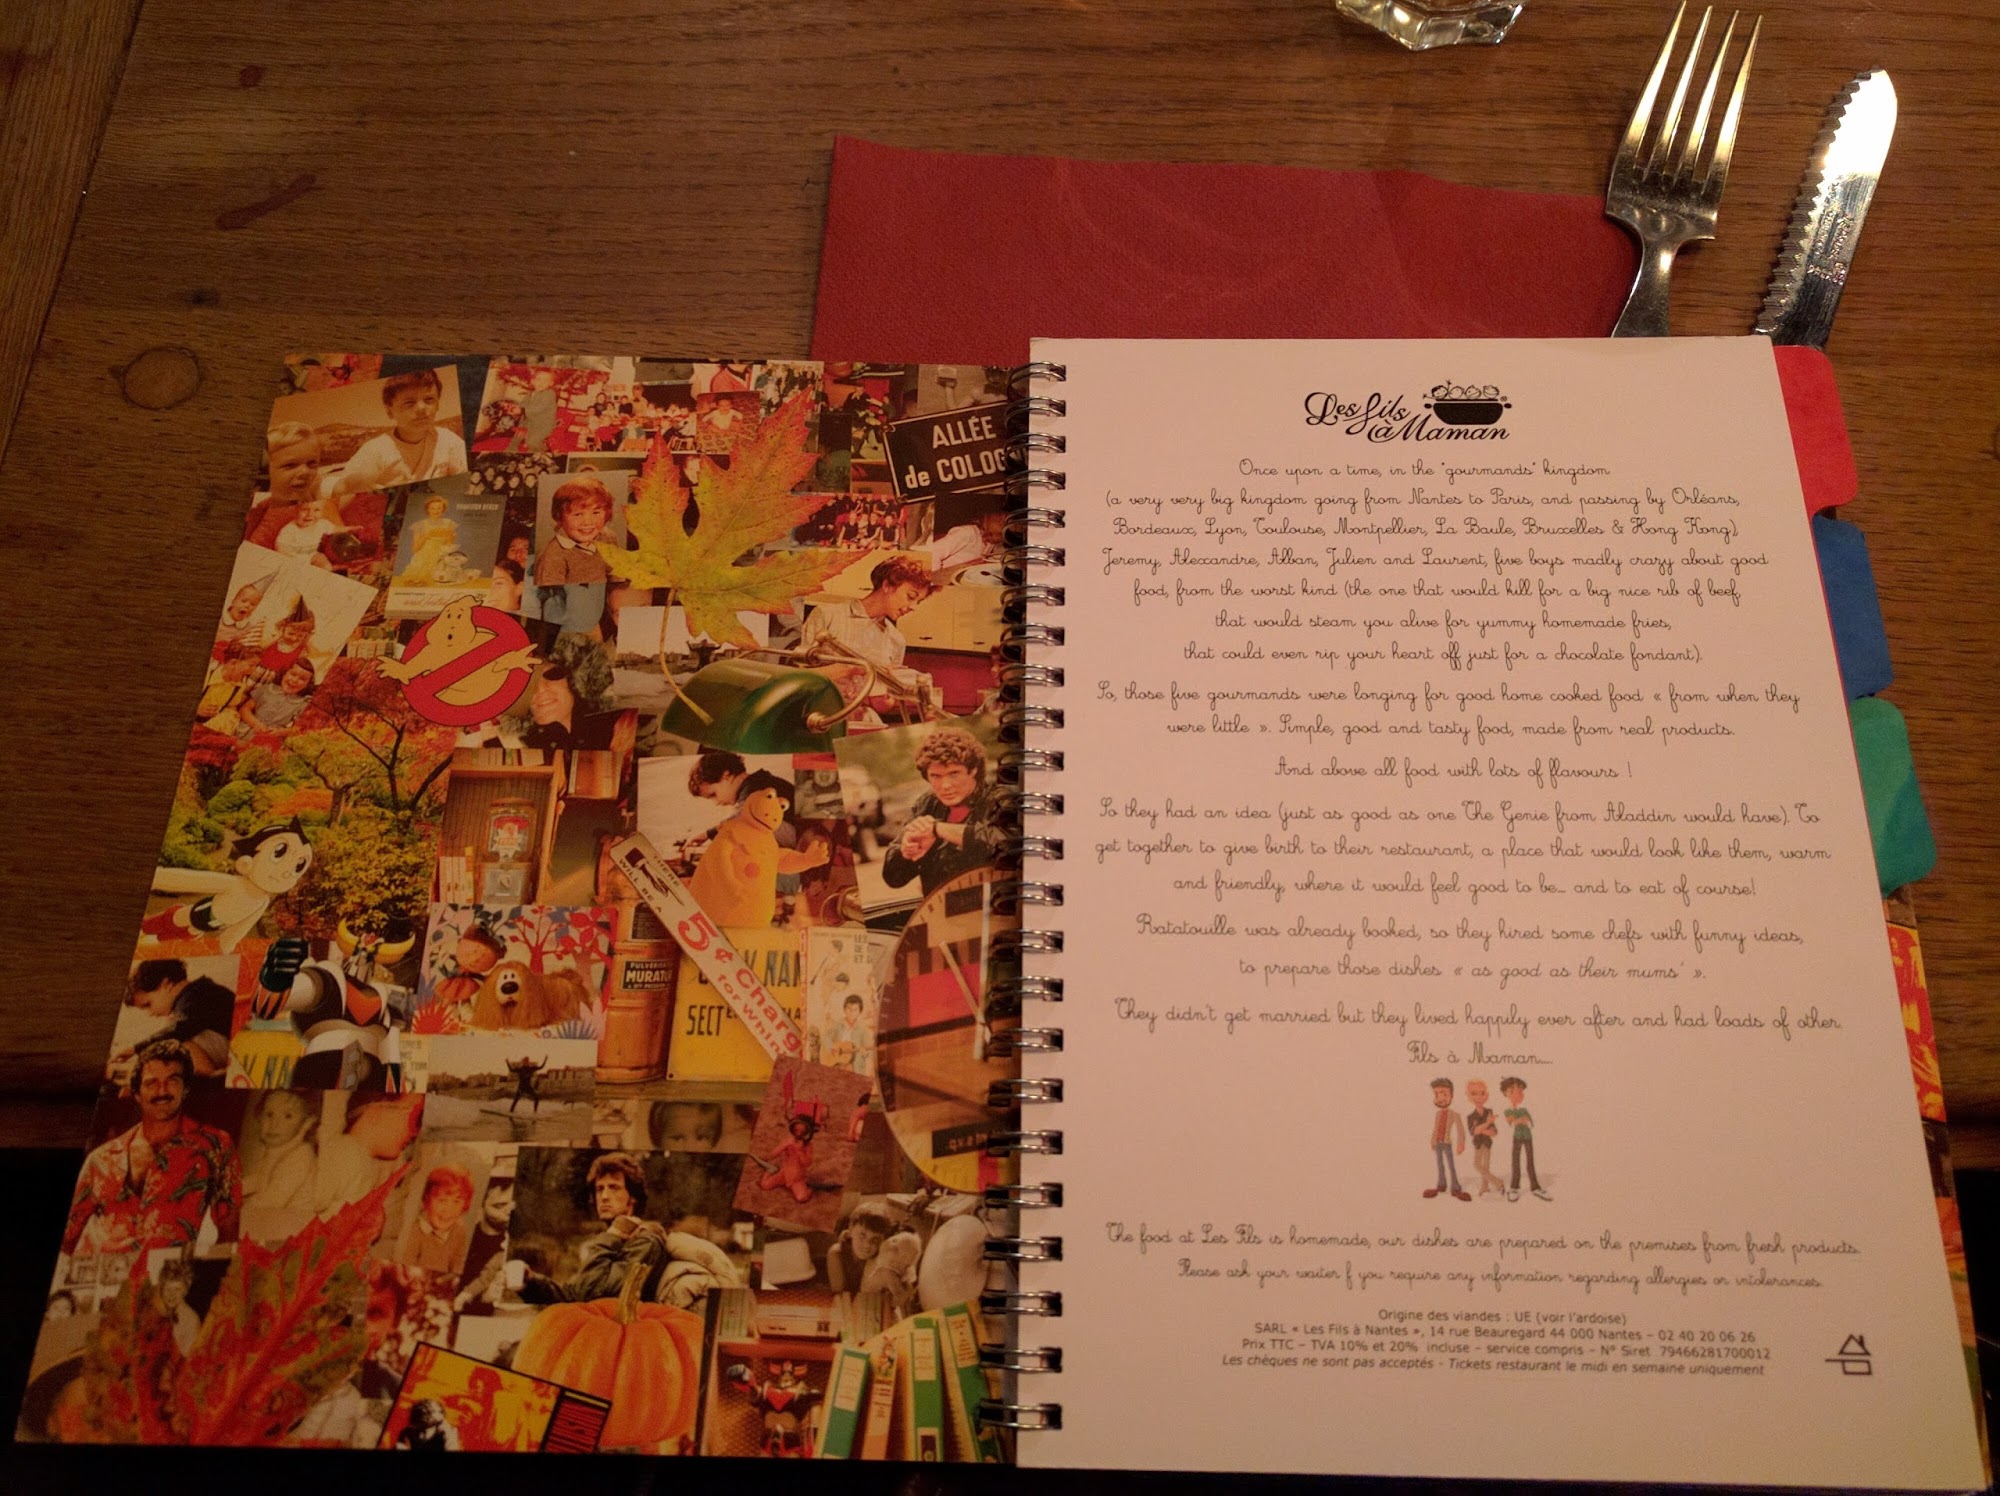 ALLÉE
de COLOG
THERE
WILL BE A
5¢ Charg
for Whin
PULVERI
MURATO
SECT
Les fils
à Maman
Once upon a time, in the "gourmands" kingdom
(a very very big kingdom going from Nantes to Paris, and passing by Orléans,
Bordeaux, Lyon, Toulouse, Montpellier, La Baule, Bruxelles & Hong Kong)
Jeremy, Alexandre, Alban, Julien and Laurent, five boys madly crazy about good
food, from the worst kind (the one that would kill for a big nice rib of beef,
that would steam you alive for yummy homemade fries,
that could even rip your heart off just for a chocolate fondant).
So, those five gourmands were longing for good home cooked food « from when they
were little ». Simple, good and tasty food, made from real products.
And above all food with lots of flavours !
So they had an idea (just as good as one The Genie from Aladdin would have). To
get together to give birth to their restaurant, a place that would look like them, warm
and friendly, where it would feel good to be... and to eat of course!
Ratatouille was already booked, so they hired some chefs with funny ideas,
to prepare those dishes « as good as their mums' ».
They didn't get married but they lived happily ever after and had loads of other
Fils à Maman....
The food at Les Fils is homemade, our dishes are prepared on the premises from fresh products.
Please ask your waiter f you require any information regarding allergies or intolerances.
Origine des viandes : UE (voir l'ardoise)
SARL « Les Fils à Nantes », 14 rue Beauregard 44 000 Nantes - 02 40 20 06 26
Prix TTC - TVA 10% et 20% incluse - service compris - N° Siret 79466281700012
Les chèques ne sont pas acceptés - Tickets restaurant le midi en semaine uniquement